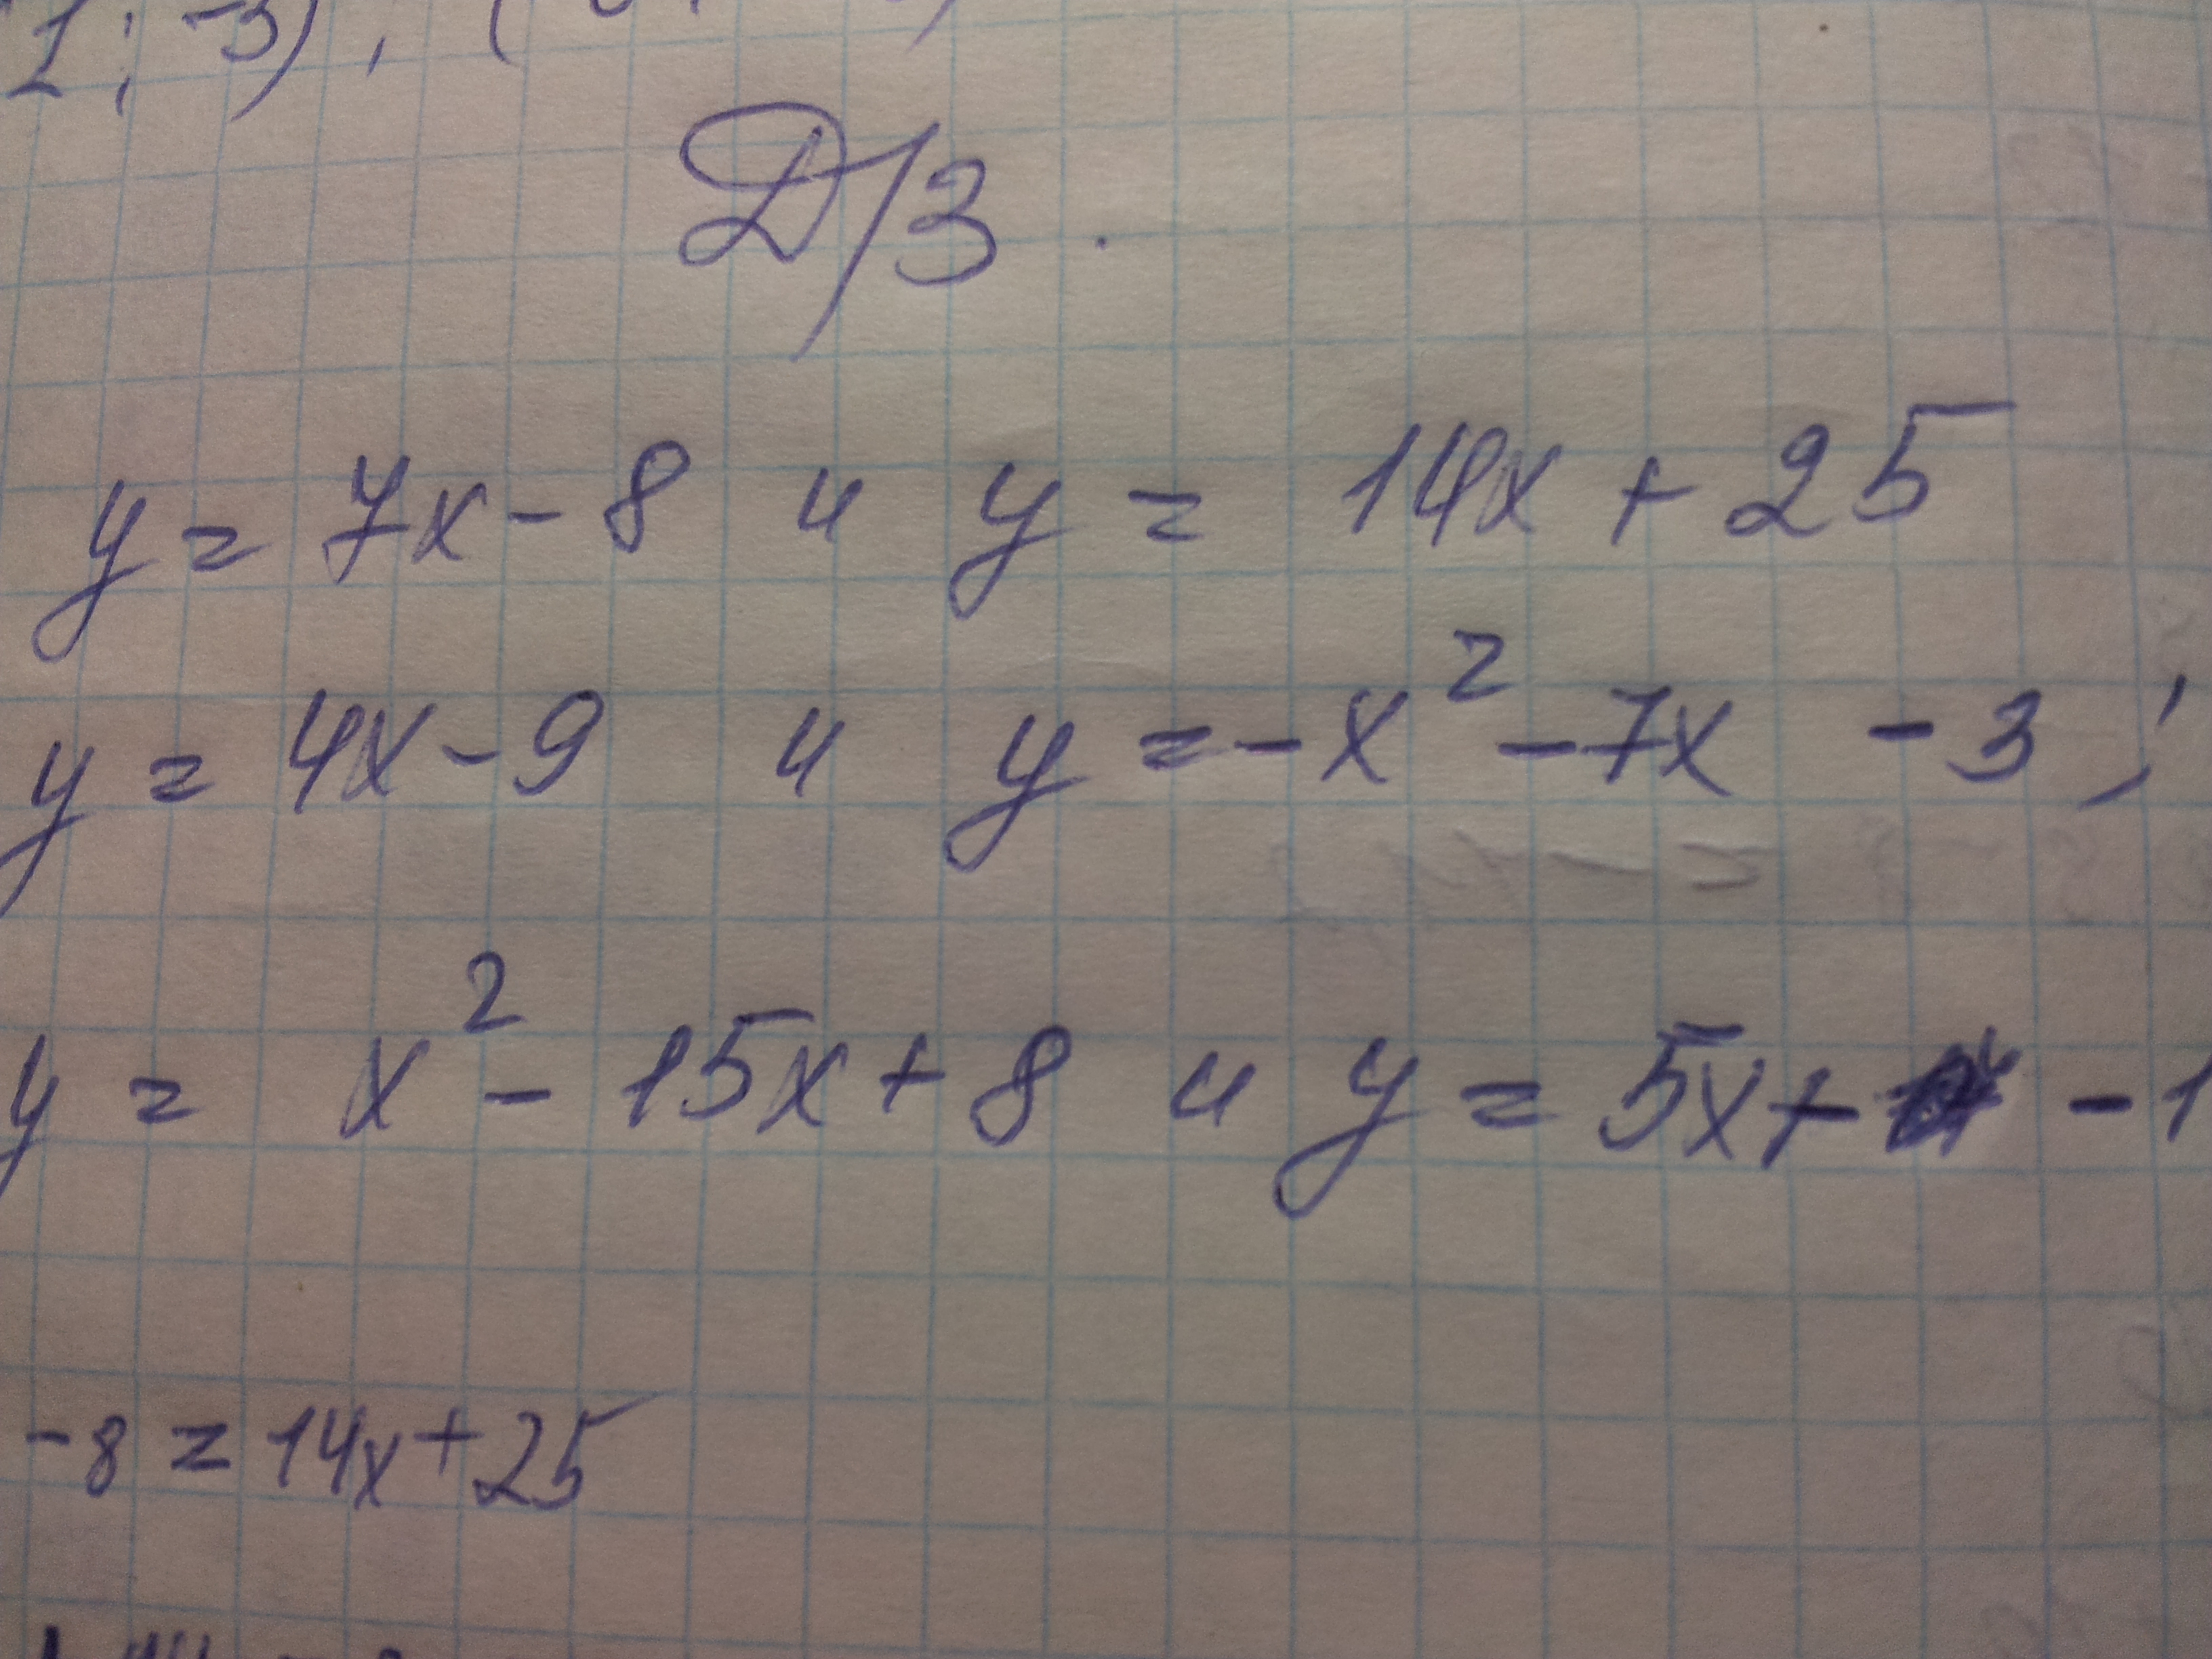 1; -3), (
Д/З.
y = 7x - 8 и y = 14x + 25
y = 4x - 9 и y = -x² - 7x - 3;
y = x² - 15x + 8 и y = 5x + - 1
-8 = 14x + 25